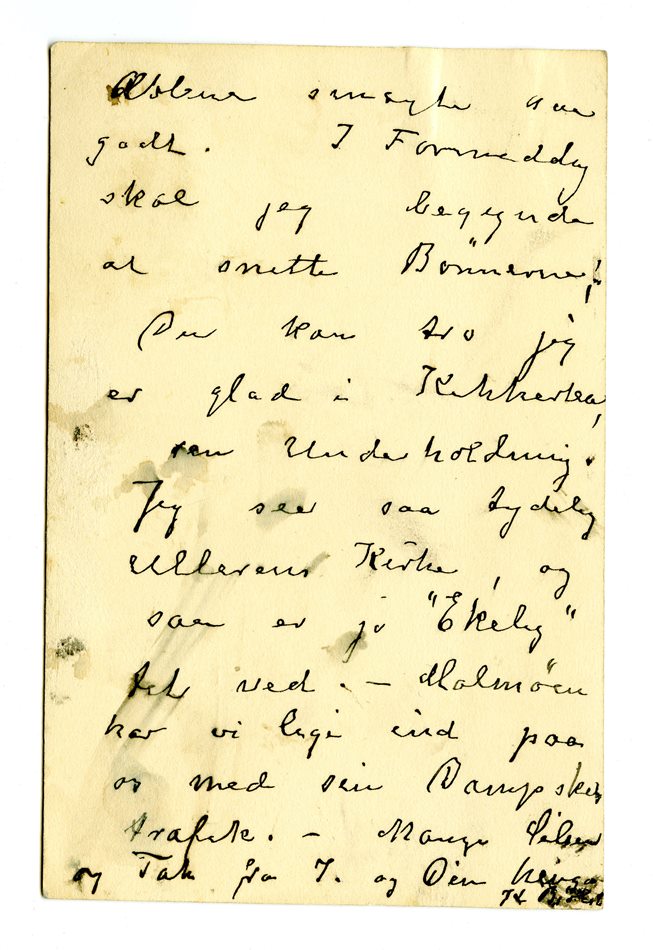 smagte saa
godt. I Formiddag
skal jeg begynde
at snitte Bønnerne!
Du kan tro jeg
er glad i Kikkerten,
ren Underholdning.
Jeg seer saa tydelig
Ullerens Kirke, og
saa er jo "Ekely"
tæt ved. — Malmöen
har vi lige ind paa
os med sin Dampskibs
trafik. — Mange Hilsen
og Tak fra J. og Din